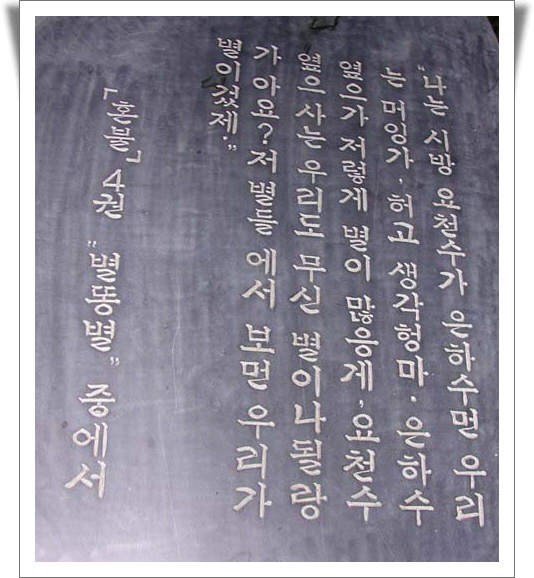 "나는 시방 요천수가 은하수면 우리
는 머잉가, 허고 생각헝마. 은하수
옆으가 저렇게 별이 많응게, 요천수
옆으 사는 우리도 무신 별이나 될랑
가 아요? 저 별들 에서 보먼 우리가
별이겄제."
「혼불」 4권 "별똥별" 중에서